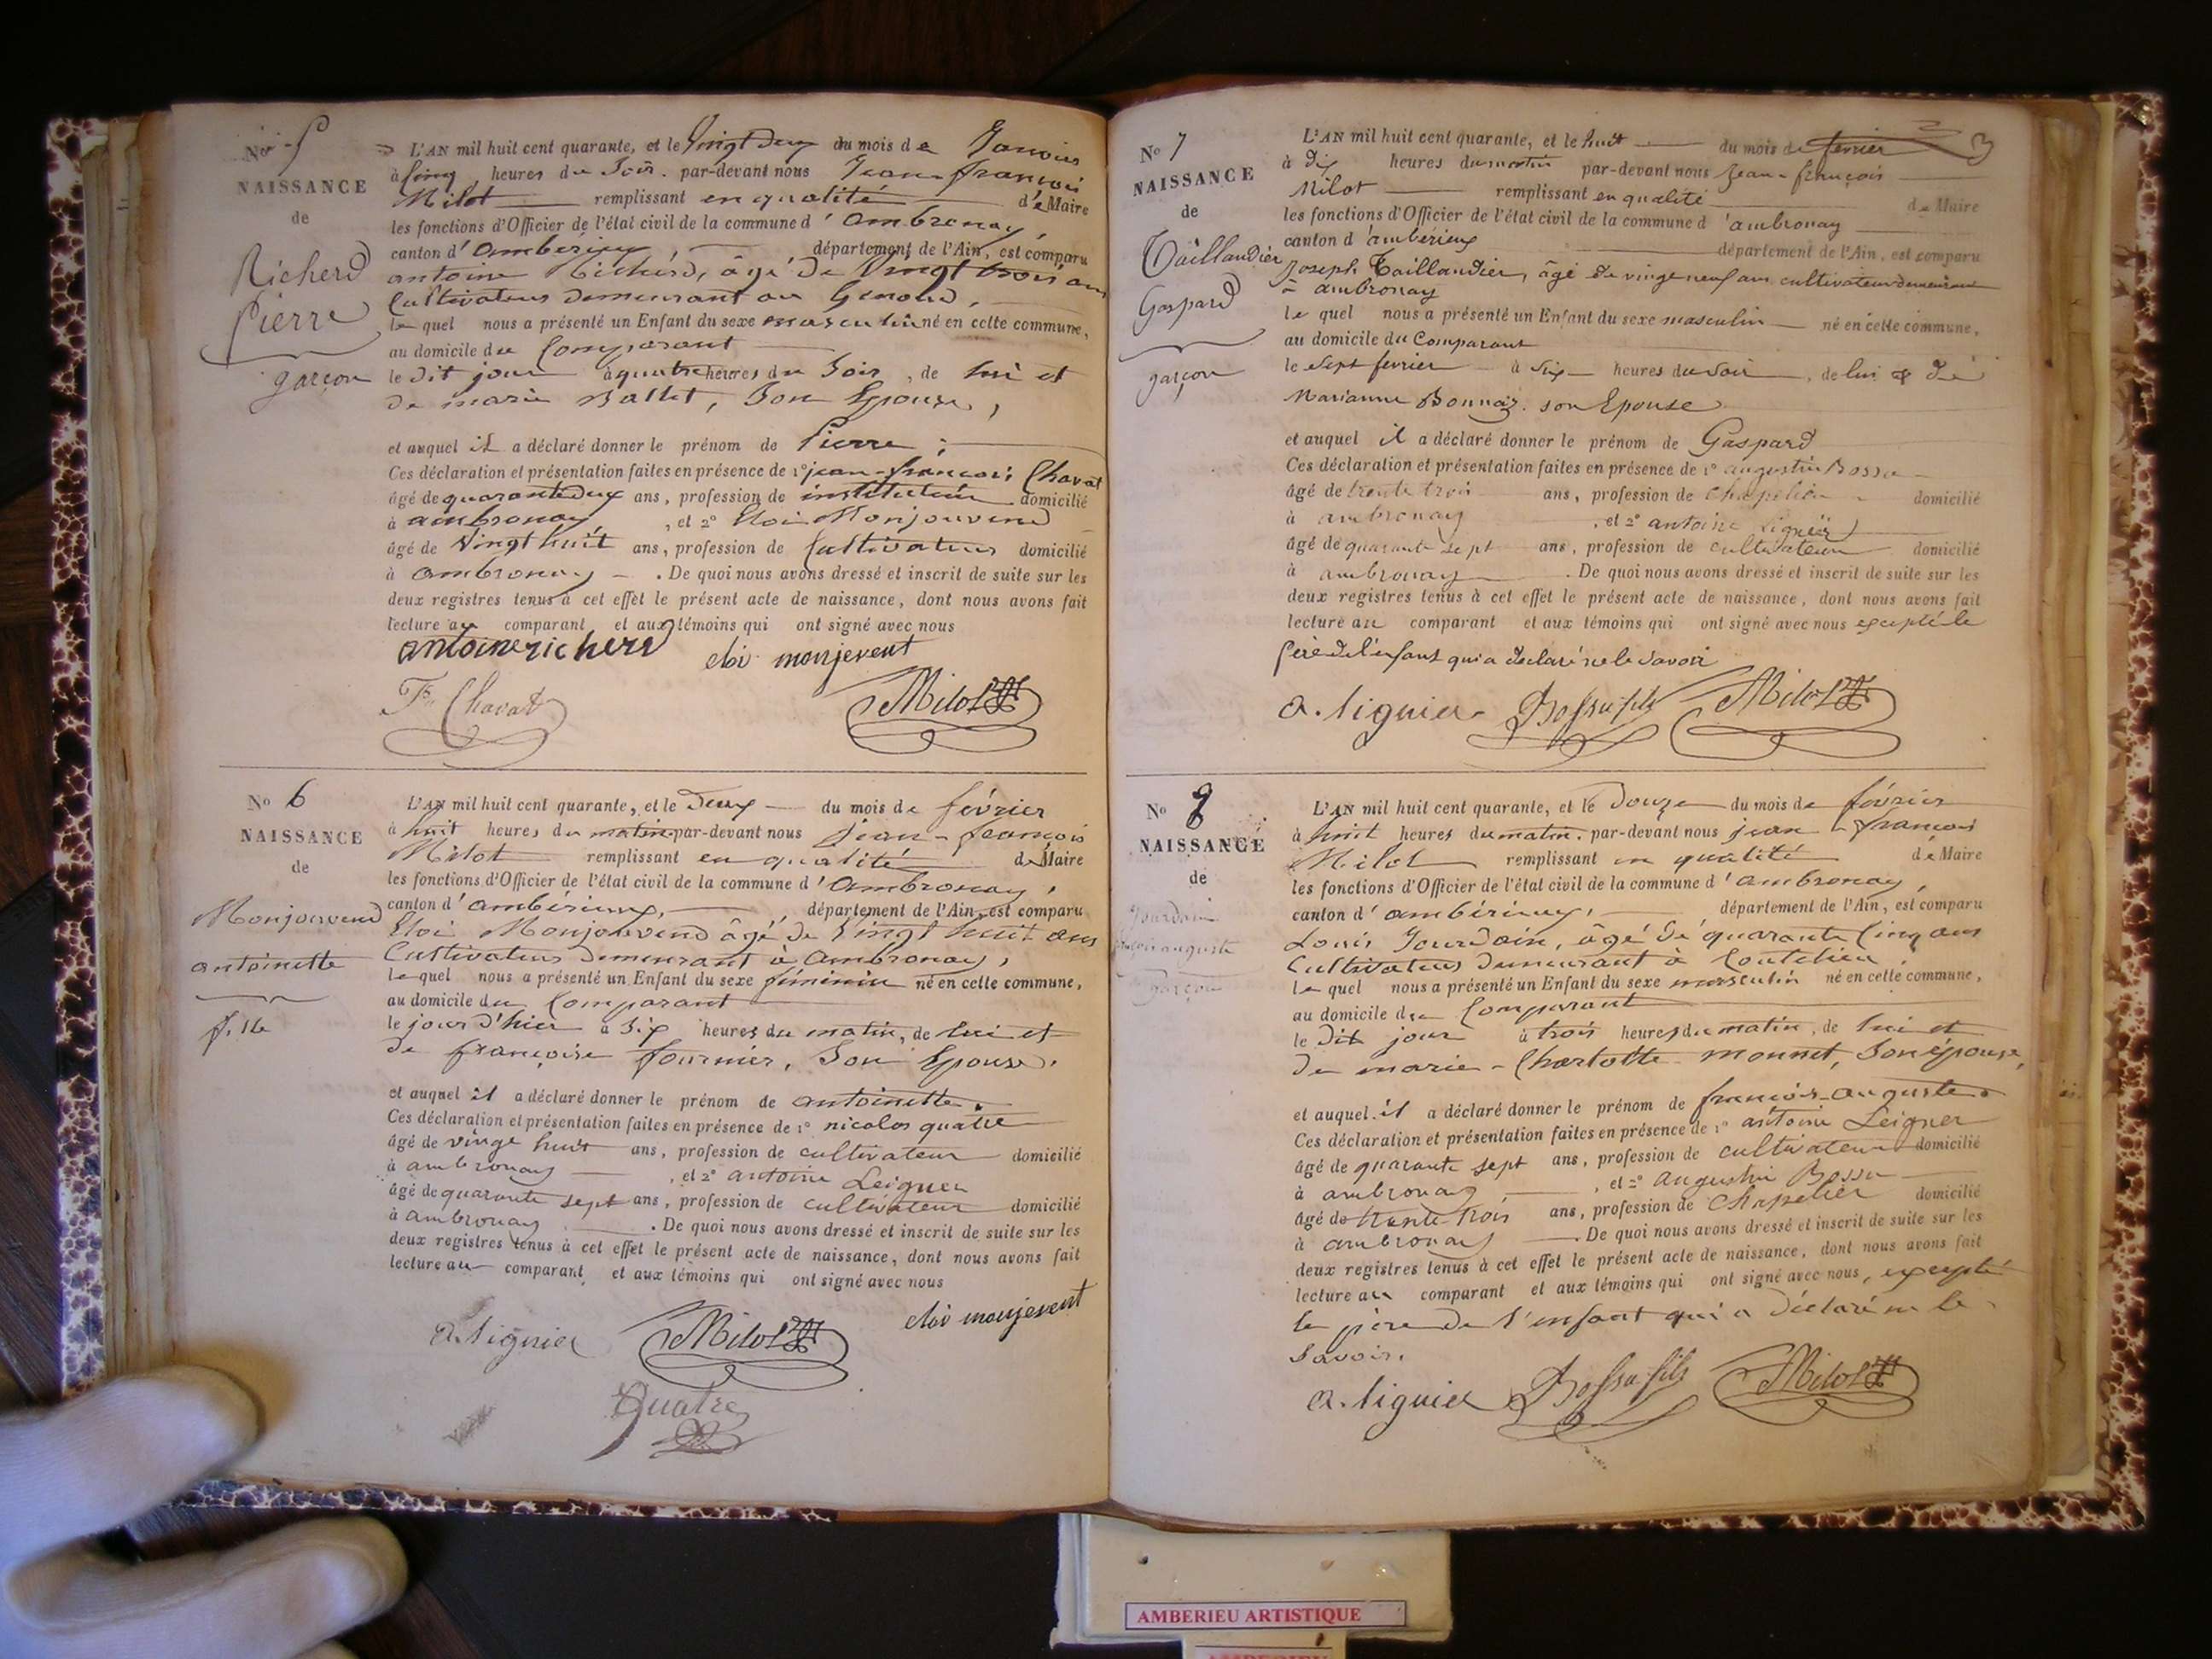 No 5
NAISSANCE
de
Richerd
Pierre
garçon
L'AN mil huit cent quarante, et le Vingt deux du mois de Janvier
à Cinq heures du Soir. par-devant nous Jean-françois
Milot remplissant en qualité de Maire
les fonctions d'Officier de l'état civil de la commune d'ambronay,
canton d'ambérieux, département de l'Ain, est comparu
antoine Richerd, âgé de Vingt trois ans
Cultivateur demeurant au Genoud,
le quel nous a présenté un Enfant du sexe masculin né en cette commune,
au domicile du Comparant
le dit jour à quatre heures du Soir, de lui et
de marie Ballet, Son Epouse,
et auquel il a déclaré donner le prénom de Pierre;
Ces déclaration et présentation faites en présence de 1° jean-francois Chavat
âgé de quarante deux ans, profession de instituteur domicilié
à ambronay, et 2° Eloi Monjouvend
âgé de Vingt huit ans, profession de Cultivateur domicilié
à ambronay. De quoi nous avons dressé et inscrit de suite sur les
deux registres tenus à cet effet le présent acte de naissance, dont nous avons fait
lecture au comparant et aux témoins qui ont signé avec nous
antoine richerd eloi monjevent
Fs Chavat Milot
No 6
NAISSANCE
de
Monjouvend
antoinette
fille
L'AN mil huit cent quarante, et le Deux du mois de février
à huit heures du matin par-devant nous jean-françois
Milot remplissant en qualité de Maire
les fonctions d'Officier de l'état civil de la commune d'ambronay,
canton d'ambérieux, département de l'Ain, est comparu
Eloi Monjouvend âgé de Vingt huit ans
Cultivateur demeurant à Ambronay,
le quel nous a présenté un Enfant du sexe féminin né en cette commune,
au domicile du Comparant
le jour d'hier à Six heures du matin, de lui et
de françoise fournier, Son Epouse.
et auquel il a déclaré donner le prénom de antoinette.
Ces déclaration et présentation faites en présence de 1° nicolas quatre
âgé de vingt huit ans, profession de cultivateur domicilié
à ambronay, et 2° antoine Leigner
âgé de quarante sept ans, profession de cultivateur domicilié
à ambronay. De quoi nous avons dressé et inscrit de suite sur les
deux registres tenus à cet effet le présent acte de naissance, dont nous avons fait
lecture au comparant et aux témoins qui ont signé avec nous
a. lignier Milot eloi monjevent
Quatre
3
No 7
NAISSANCE
de
Taillandier
Gaspard
garçon
L'AN mil huit cent quarante, et le huit du mois de fevrier
à dix heures du matin par-devant nous Jean-françois
Milot remplissant en qualité de Maire
les fonctions d'Officier de l'état civil de la commune d'ambronay
canton d'ambérieux département de l'Ain, est comparu
Joseph Taillandier, âgé de vingt neuf ans cultivateur demeurant
à ambronay
le quel nous a présenté un Enfant du sexe masculin né en cette commune,
au domicile du Comparant
le Sept fevrier à Six heures du Soir, de lui & de
Marianne Bonnaz son Epouse
et auquel il a déclaré donner le prénom de Gaspard
Ces déclaration et présentation faites en présence de 1° augustin Bossu
âgé de trente trois ans, profession de Chapelier domicilié
à ambronay, et 2° antoine Lignier
âgé de quarante sept ans, profession de cultivateur domicilié
à ambronay. De quoi nous avons dressé et inscrit de suite sur les
deux registres tenus à cet effet le présent acte de naissance, dont nous avons fait
lecture au comparant et aux témoins qui ont signé avec nous excepté le
père de l'enfant qui a declaré ne le savoir
a. lignier Bossu fils Milot
No 8
NAISSANCE
de
Jourdain
françois auguste
garçon
L'AN mil huit cent quarante, et le Douze du mois de février
à huit heures du matin. par-devant nous jean-françois
Milot remplissant en qualité de Maire
les fonctions d'Officier de l'état civil de la commune d'ambronay,
canton d'ambérieux, département de l'Ain, est comparu
Louis Jourdain, âgé de quarante Cinq ans
Cultivateur demeurant à Coutelieu,
le quel nous a présenté un Enfant du sexe masculin né en cette commune,
au domicile du Comparant
le dit jour à trois heures du matin, de lui et
de marie-Charlotte monnet, Son épouse,
et auquel il a déclaré donner le prénom de francois-auguste.
Ces déclaration et présentation faites en présence de 1° antoine Leigner
âgé de quarante sept ans, profession de cultivateur domicilié
à ambronay, et 2° augustin Bossu
âgé de trente trois ans, profession de Chapelier domicilié
à ambronay. De quoi nous avons dressé et inscrit de suite sur les
deux registres tenus à cet effet le présent acte de naissance, dont nous avons fait
lecture au comparant et aux témoins qui ont signé avec nous, excepté
le père de l'enfant qui a déclaré ne le
Savoir.
a. lignier Bossu fils Milot
AMBERIEU ARTISTIQUE
AMBERIEU